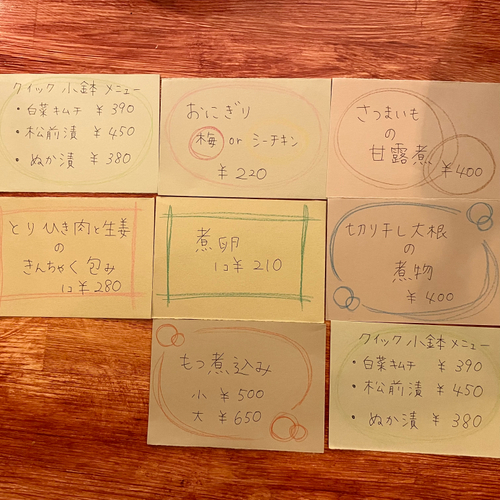 クイック 小鉢 メニュー
・白菜キムチ ¥390
・松前漬 ¥450
・ぬか漬 ¥380
おにぎり
梅 or シーチキン
¥220
さつまいも
の
甘露煮
¥400
とりひき肉と生姜
の
きんちゃく包み
1コ ¥280
煮卵
1コ ¥210
切り干し大根
の
煮物
¥400
もつ煮込み
小 ¥500
大 ¥650
クイック 小鉢 メニュー
・白菜キムチ ¥390
・松前漬 ¥450
・ぬか漬 ¥380